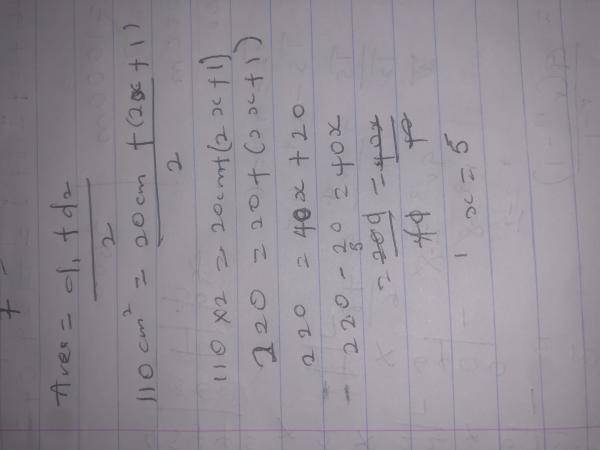 7
Area = d1 + d2
2
110 cm² = 20cm + (2x + 1)
2
110 x2 = 20cm + (2x + 1)
220 = 20 + (2x + 1)
220 = 40x + 20
220 - 20 = 40x
= 200 = 40x
40 40
x = 5